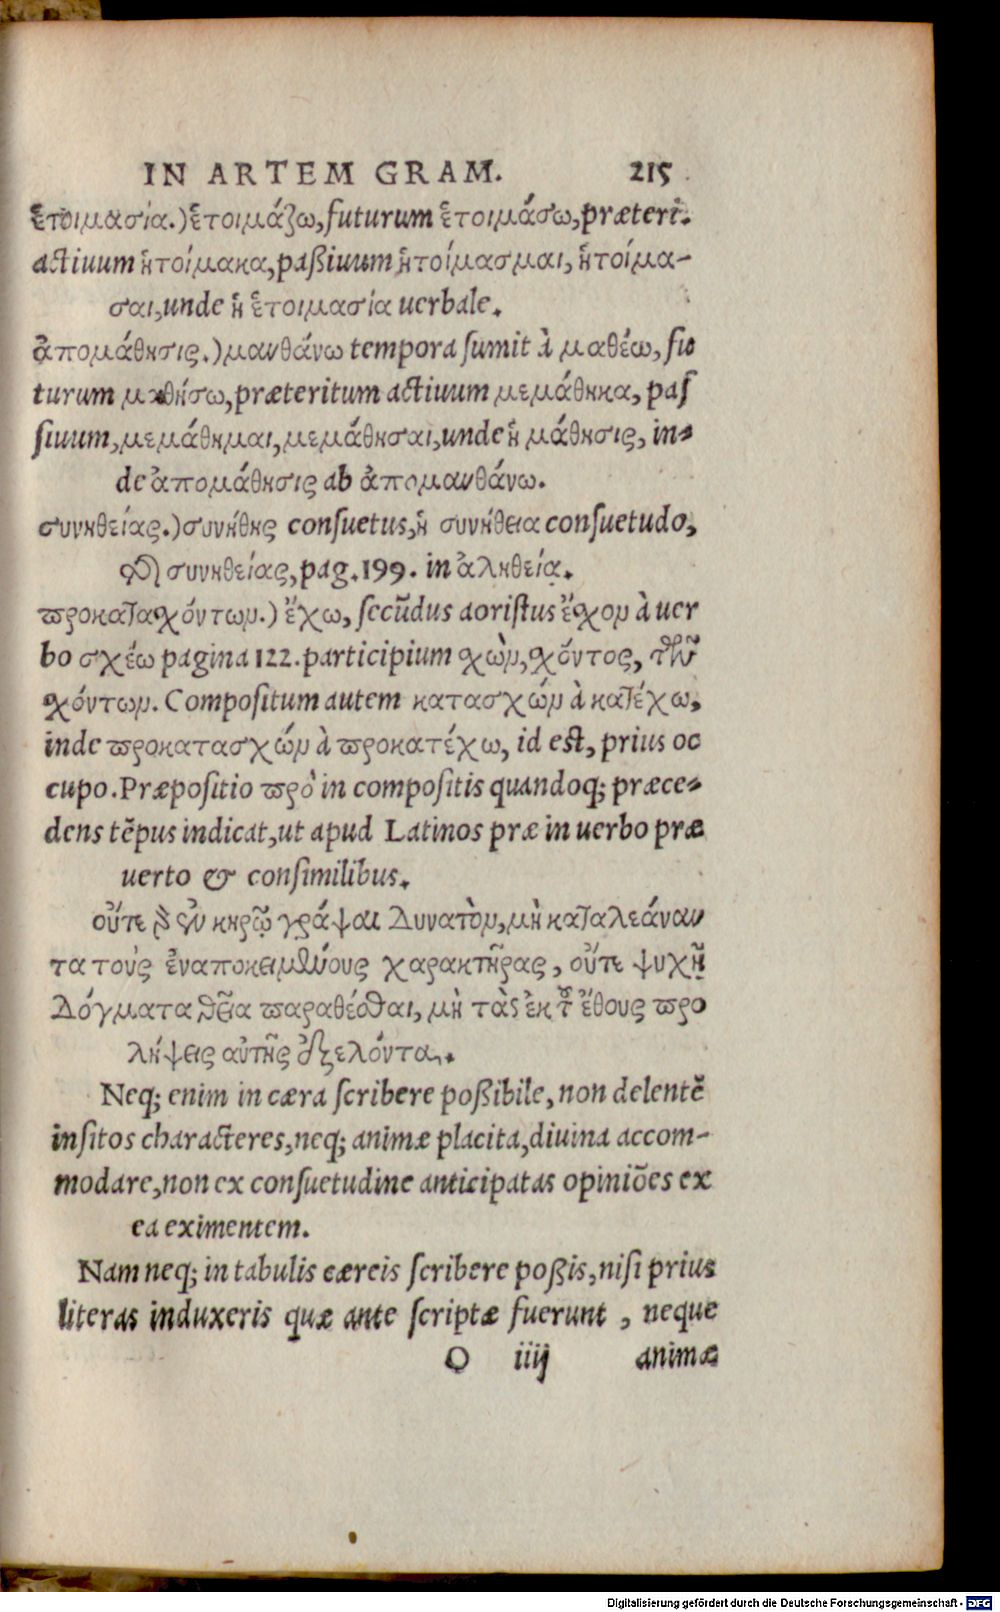 IN ARTEM GRAM. 215
ἑτοιμασία.) ἑτοιμάζω, futurum ἑτοιμάσω, præteri.
actiuum ἡτοίμακα, paßiuum ἡτοίμασμαι, ἡτοίμα-
σαι, unde ἡ ἑτοιμασία uerbale.
ἀπομάθησις.) μανθάνω tempora sumit à μαθέω, fu
turum μαθήσω, præteritum actiuum μεμάθηκα, pas
siuum, μεμάθημαι, μεμάθησαι, unde ἡ μάθησις, in-
de ἀπομάθησις ab ἀπομανθάνω.
συνηθείας.) συνήθης consuetus, ἡ συνήθεια consuetudo,
περὶ συνηθείας, pag. 199. in ἀληθείᾳ.
προκατασχόντων.) ἔχω, secũdus aoristus ἔσχον à uer
bo σχέω pagina 122. participium σχὼν, σχόντος, τῶν
σχόντων. Compositum autem κατασχών à κατέχω,
inde προκατασχών à προκατέχω, id est, prius oc
cupo. Præpositio πρὸ in compositis quandoq; præce-
dens tẽpus indicat, ut apud Latinos præ in uerbo præ
uerto & consimilibus.
οὔτε γὰρ ἐν κηρῷ γράψαι δυνατὸν, μὴ καταλεάναν
τα τοὺς ἐναποκειμένους χαρακτῆρας, οὔτε ψυχῇ
δόγματα θεῖα παραθέσθαι, μὴ τὰς ἐκ τοῦ ἔθους προ
λήψεις αὐτῆς ἐξελόντα.
Neq; enim in cæra scribere poßibile, non delentẽ
insitos characteres, neq; animæ placita, diuina accom-
modare, non ex consuetudine anticipatas opiniões ex
ea eximentem.
Nam neq; in tabulis cæreis scribere poßis, nisi prius
literas induxeris quæ ante scriptæ fuerunt, neque
O iiij animæ
Digitalisierung gefördert durch die Deutsche Forschungsgemeinschaft - DFG